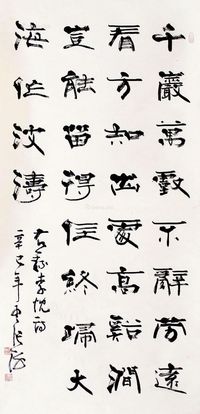 千巖萬壑不辭勞遠
看方知出處高谿澗
豈能留得住終歸大
海作波濤
李忱詩
辛巳年